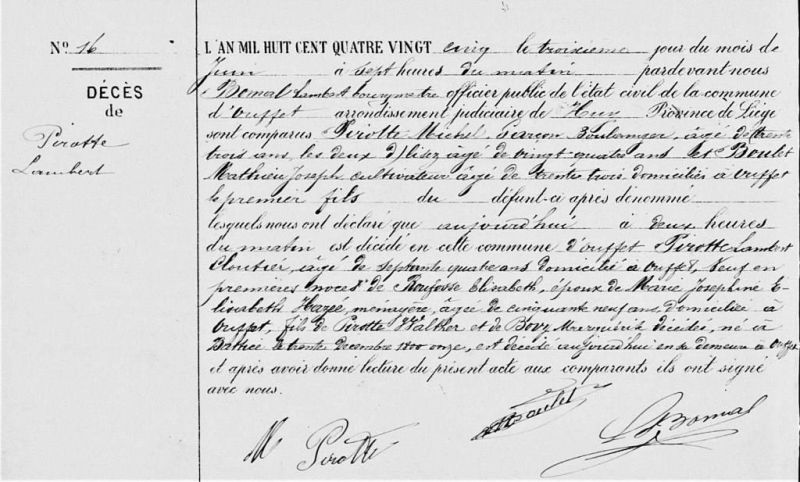 Nº 16
DÉCÈS
de
Pirotte
Lambert
L'AN MIL HUIT CENT QUATRE VINGT cinq le troisième jour du mois de
Juin à sept heures du matin pardevant nous
Bomal Lambert bourgmestre officier public de l'état civil de la commune
d'ouffet arrondissement judiciaire de Huy Province de Liége
sont comparus Pirotte Michel Garçon Boulanger, âgé de trente
trois ans, les deux âgé de vingt quatre ans et Boulet
Mathieu Joseph cultivateur âgé de trente trois domiciliés à ouffet
le premier fils du défunt ci après dénommé
lesquels nous ont déclaré que aujourd'hui à deux heures
du matin est décédé en cette commune d'ouffet Pirotte Lambert
Cloutier, âgé de septante quatre ans domicilié à ouffet, veuf en
premières noces de Elisabeth, époux de Marie Joséphine E-
lisabeth ménagère, âgée de cinquante neuf ans, domiciliée à
ouffet, fils de Pirotte Walther et de décédés, né à
le trente Décembre 1800 onze, est décédé aujourd'hui en sa demeure à ouffet
et après avoir donné lecture du présent acte aux comparants ils ont signé
avec nous.
M Pirotte
Boulet
Bomal